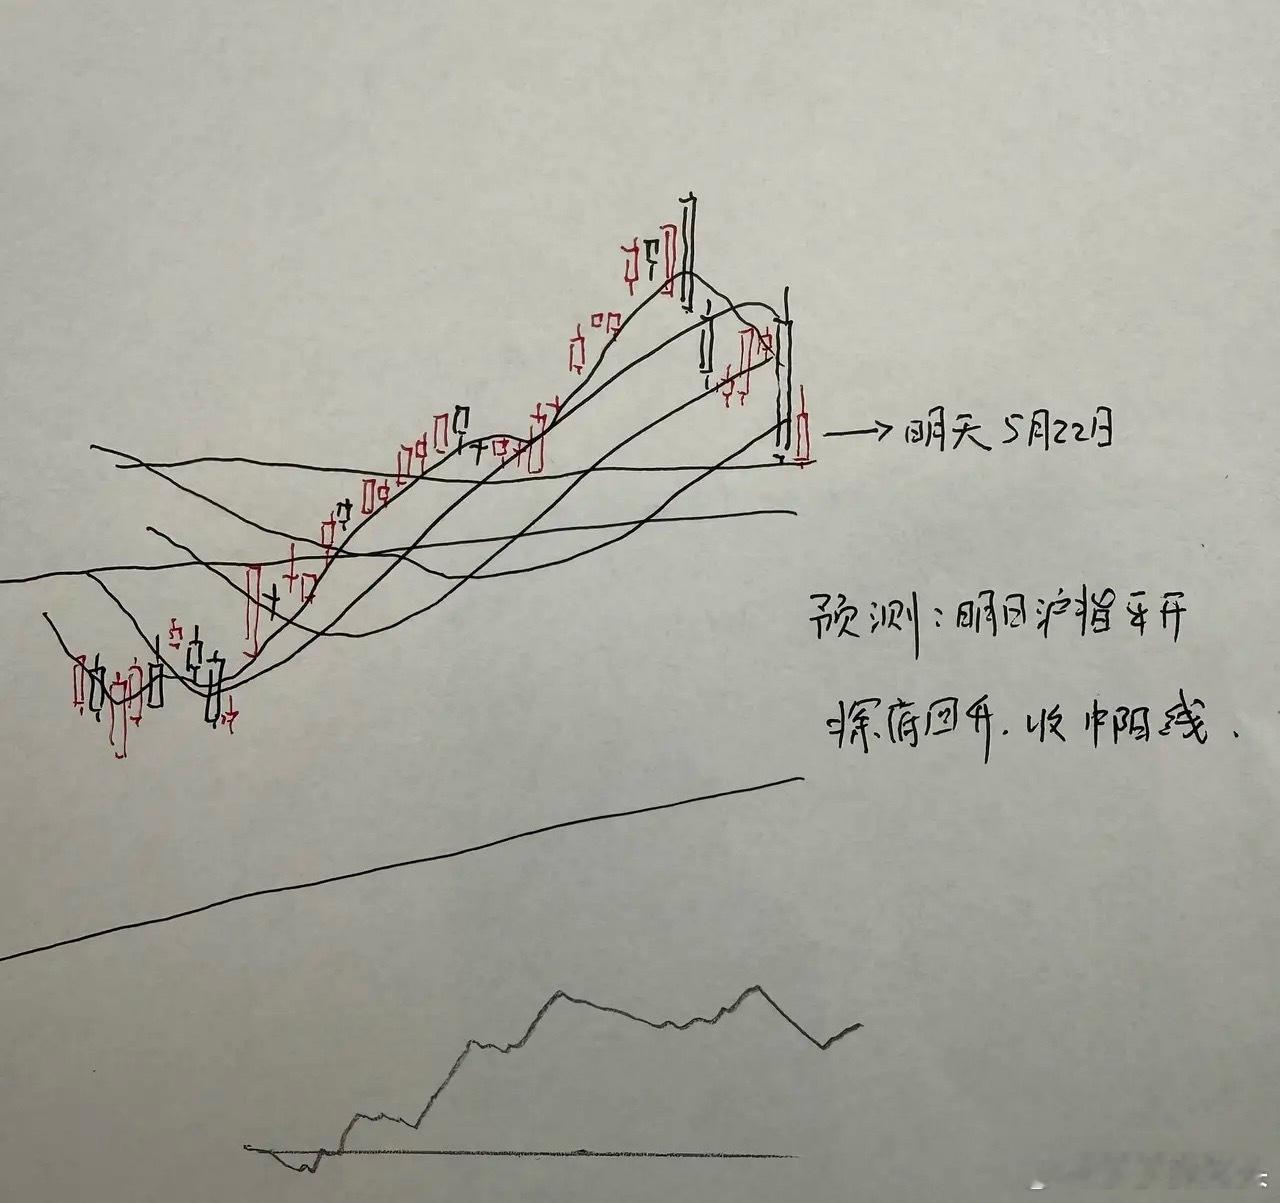 明天5月22日
预测:明日沪指平开
探底回升.收中阳线.